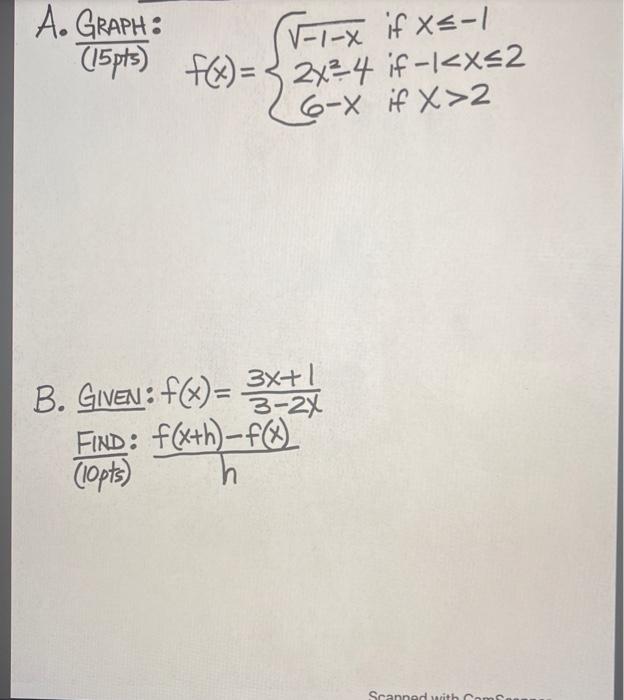 A. GRAPH:
(15pts)
f(x) = { √-1-x if x≤-1
2x²-4 if -1<x≤2
6-x if x>2
B. GIVEN: f(x) = 3x+1
3-2x
FIND: f(x+h)-f(x)
(10pts) h
Scanned with